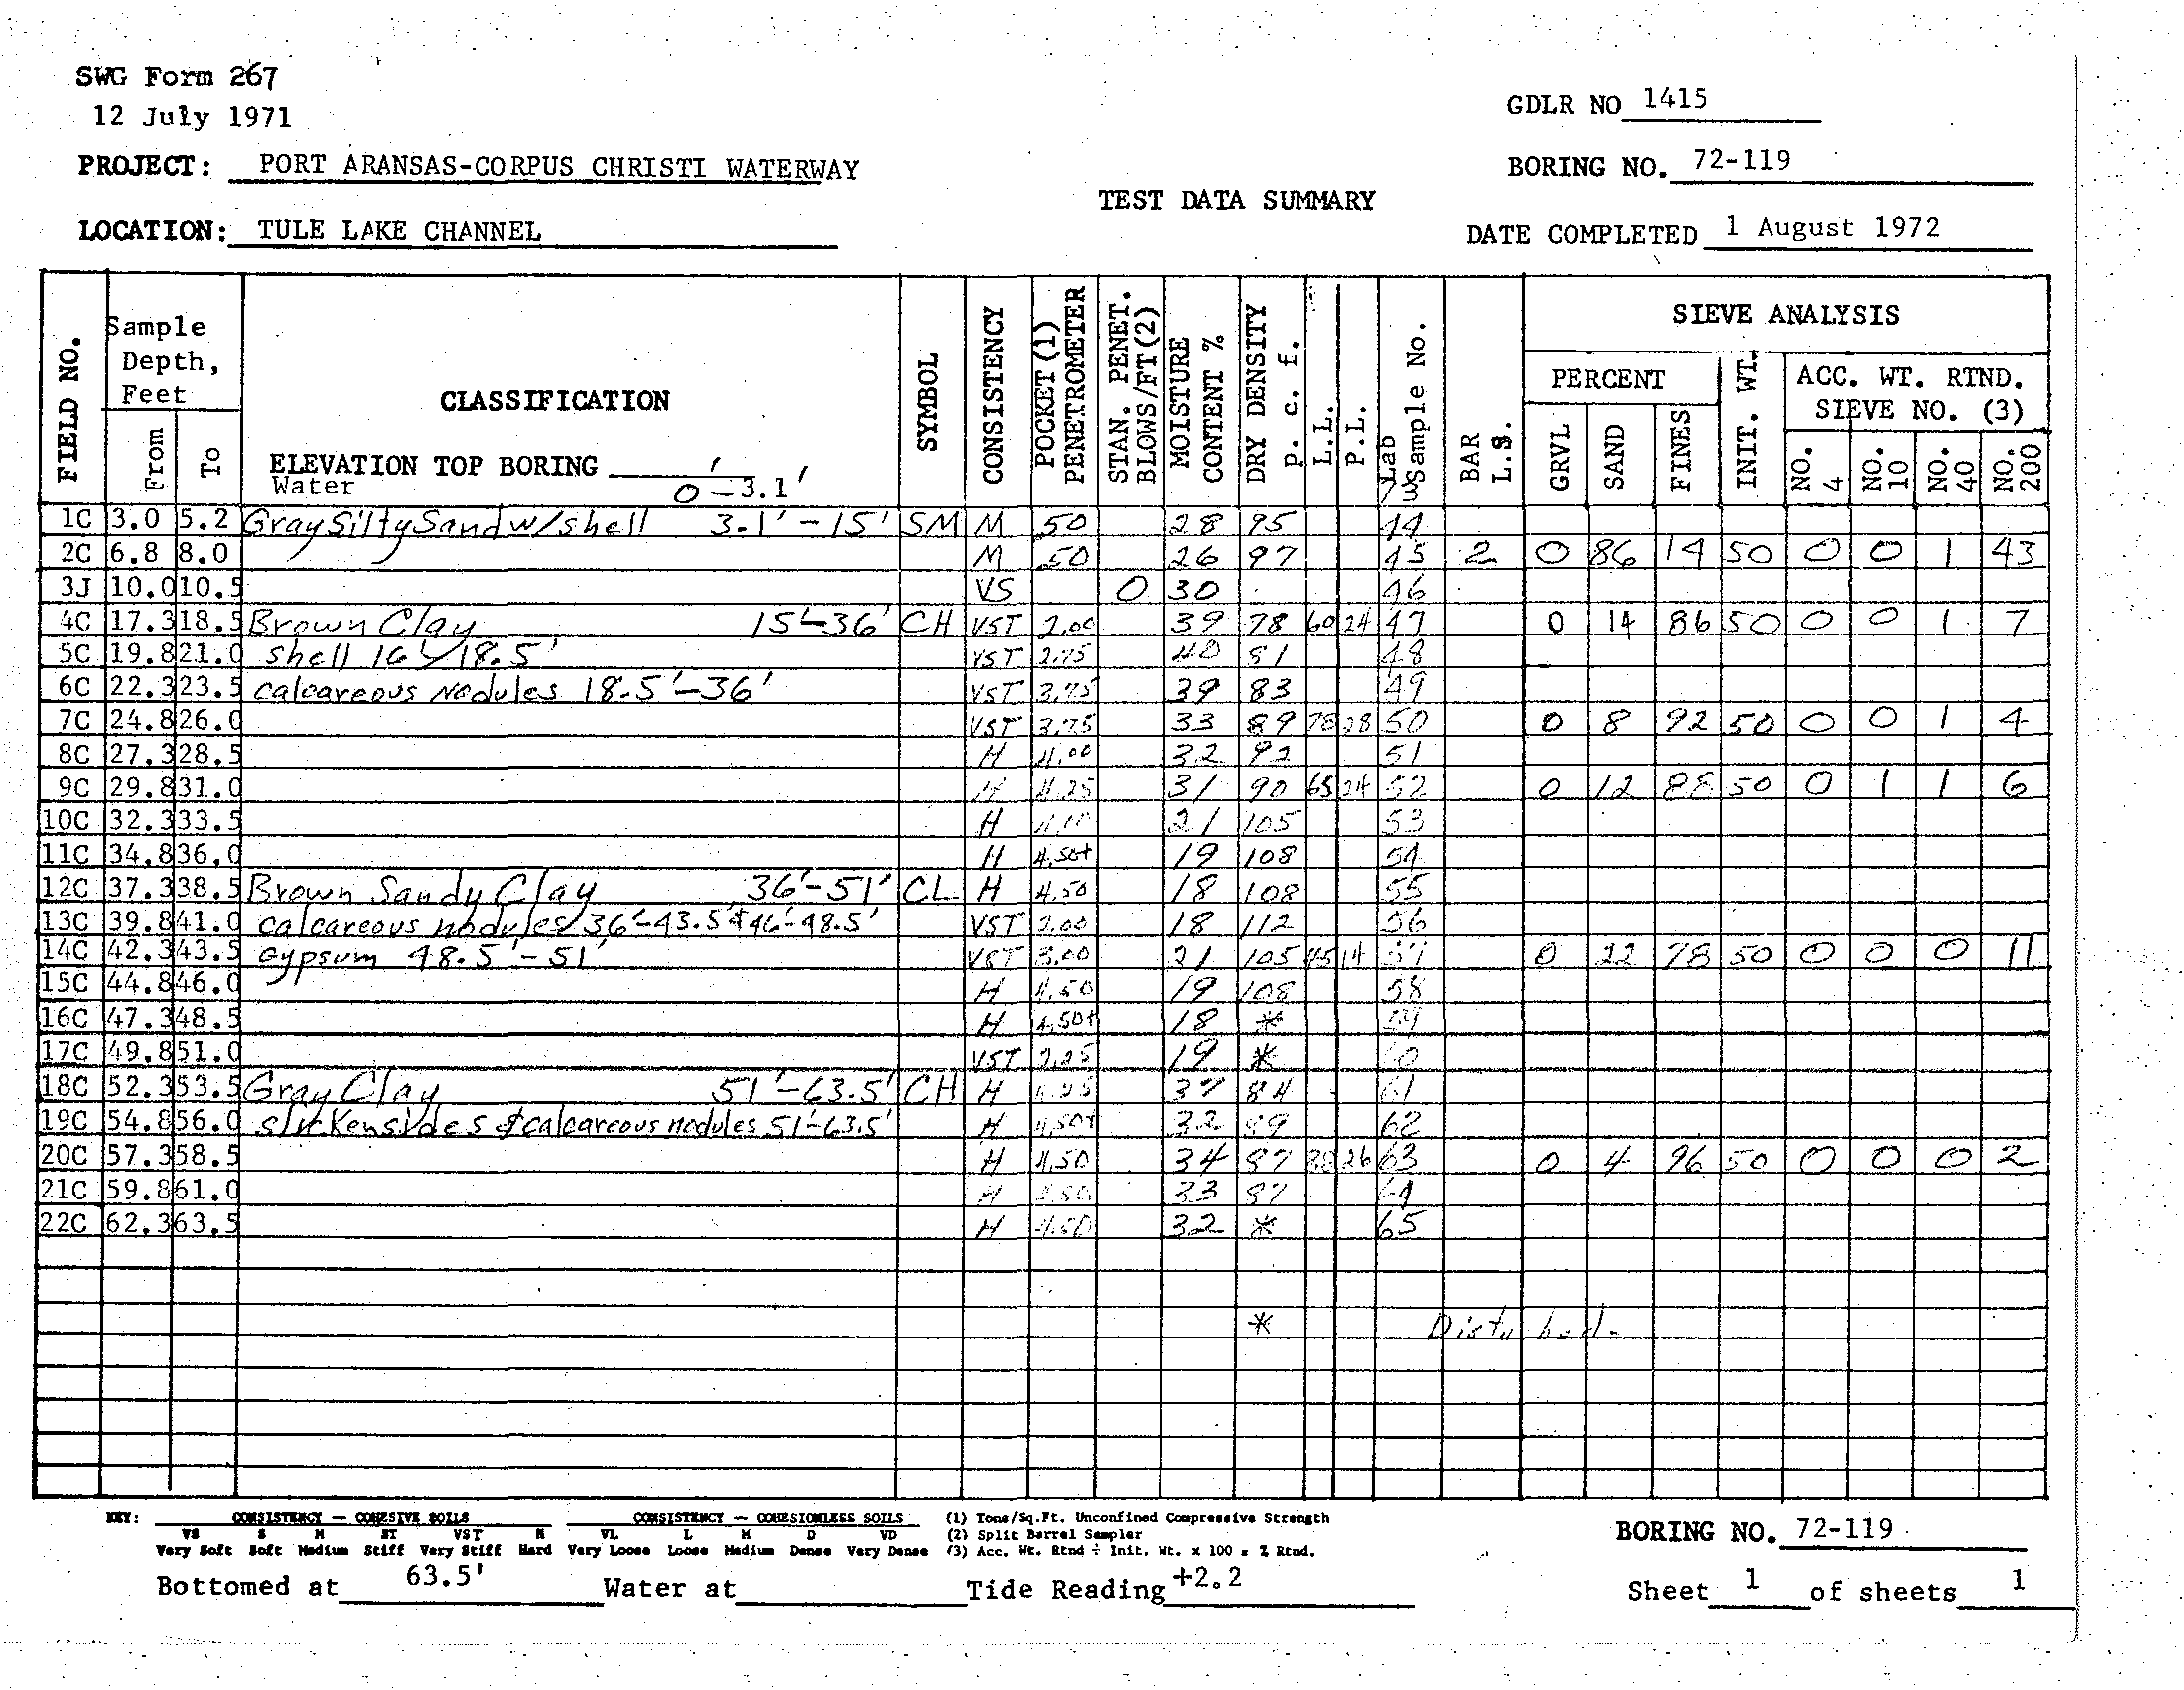 SWG Form 267
12 July 1971
GDLR NO 1415
PROJECT: PORT ARANSAS-CORPUS CHRISTI WATERWAY
BORING NO. 72-119
TEST DATA SUMMARY
LOCATION: TULE LAKE CHANNEL
DATE COMPLETED 1 August 1972
FIELD NO.
Sample Depth, Feet
From
To
CLASSIFICATION
ELEVATION TOP BORING '
Water 0-3.1'
SYMBOL
CONSISTENCY
POCKET (1) PENETROMETER
STAN. PENET. BLOWS/FT(2)
MOISTURE CONTENT %
DRY DENSITY p. c. f.
L.L.
P.L.
Lab Sample No.
BAR L.S.
SIEVE ANALYSIS
PERCENT
GRVL
SAND
FINES
INIT. WT.
ACC. WT. RTND. SIEVE NO. (3)
NO. 4
NO. 10
NO. 40
NO. 200
1C 3.0 5.2 Gray Silty Sand w/shell 3.1'-15' SM M .50 28 95 44
2C 6.8 8.0 M .50 26 97 45 2 0 86 14 50 0 0 1 43
3J 10.0 10.5 VS 0 30 46
4C 17.3 18.5 Brown Clay 15'-36' CH VST 2.00 39 78 60 24 47 0 14 86 50 0 0 1 7
5C 19.8 21.0 shell 16'-18.5' VST 2.75 40 81 48
6C 22.3 23.5 calcareous Nodules 18.5'-36' VST 3.75 39 83 49
7C 24.8 26.0 VST 3.75 33 89 78 28 50 0 8 92 50 0 0 1 4
8C 27.3 28.5 H 4.00 32 92 51
9C 29.8 31.0 H 4.25 31 90 65 24 52 0 12 88 50 0 1 1 6
10C 32.3 33.5 H 21 105 53
11C 34.8 36.0 H 4.50+ 19 108 54
12C 37.3 38.5 Brown Sandy Clay 36'-51' CL H 4.50 18 108 55
13C 39.8 41.0 calcareous nodules 36'-43.5' & 46'-48.5' VST 18 112 56
14C 42.3 43.5 Gypsum 48.5'-51' VST 3.00 21 105 45 14 57 0 22 78 50 0 0 0 11
15C 44.8 46.0 H 4.50 19 108 58
16C 47.3 48.5 H 4.50+ 18 * 59
17C 49.8 51.0 VST 19 * 60
18C 52.3 53.5 Gray Clay 51'-63.5' CH H 84 61
19C 54.8 56.0 slickensides & calcareous nodules 51'-63.5' H 4.50+ 32 89 62
20C 57.3 58.5 H 4.50 34 87 26 63 0 4 96 50 0 0 0 2
21C 59.8 61.0 H 4.50 33 87 64
22C 62.3 63.5 H 4.50 32 * 65
* Disturbed.
KEY: CONSISTENCY - COHESIVE SOILS CONSISTENCY - COHESIONLESS SOILS (1) Tons/Sq.Ft. Unconfined Compressive Strength
VS S M ST VST H VL L M D VD (2) Split Barrel Sampler
Very Soft Soft Medium Stiff Very Stiff Hard Very Loose Loose Medium Dense Very Dense (3) Acc. Wt. Rtnd ÷ Init. Wt. x 100 = % Rtnd.
BORING NO. 72-119
Bottomed at 63.5' Water at Tide Reading +2.2
Sheet 1 of sheets 1